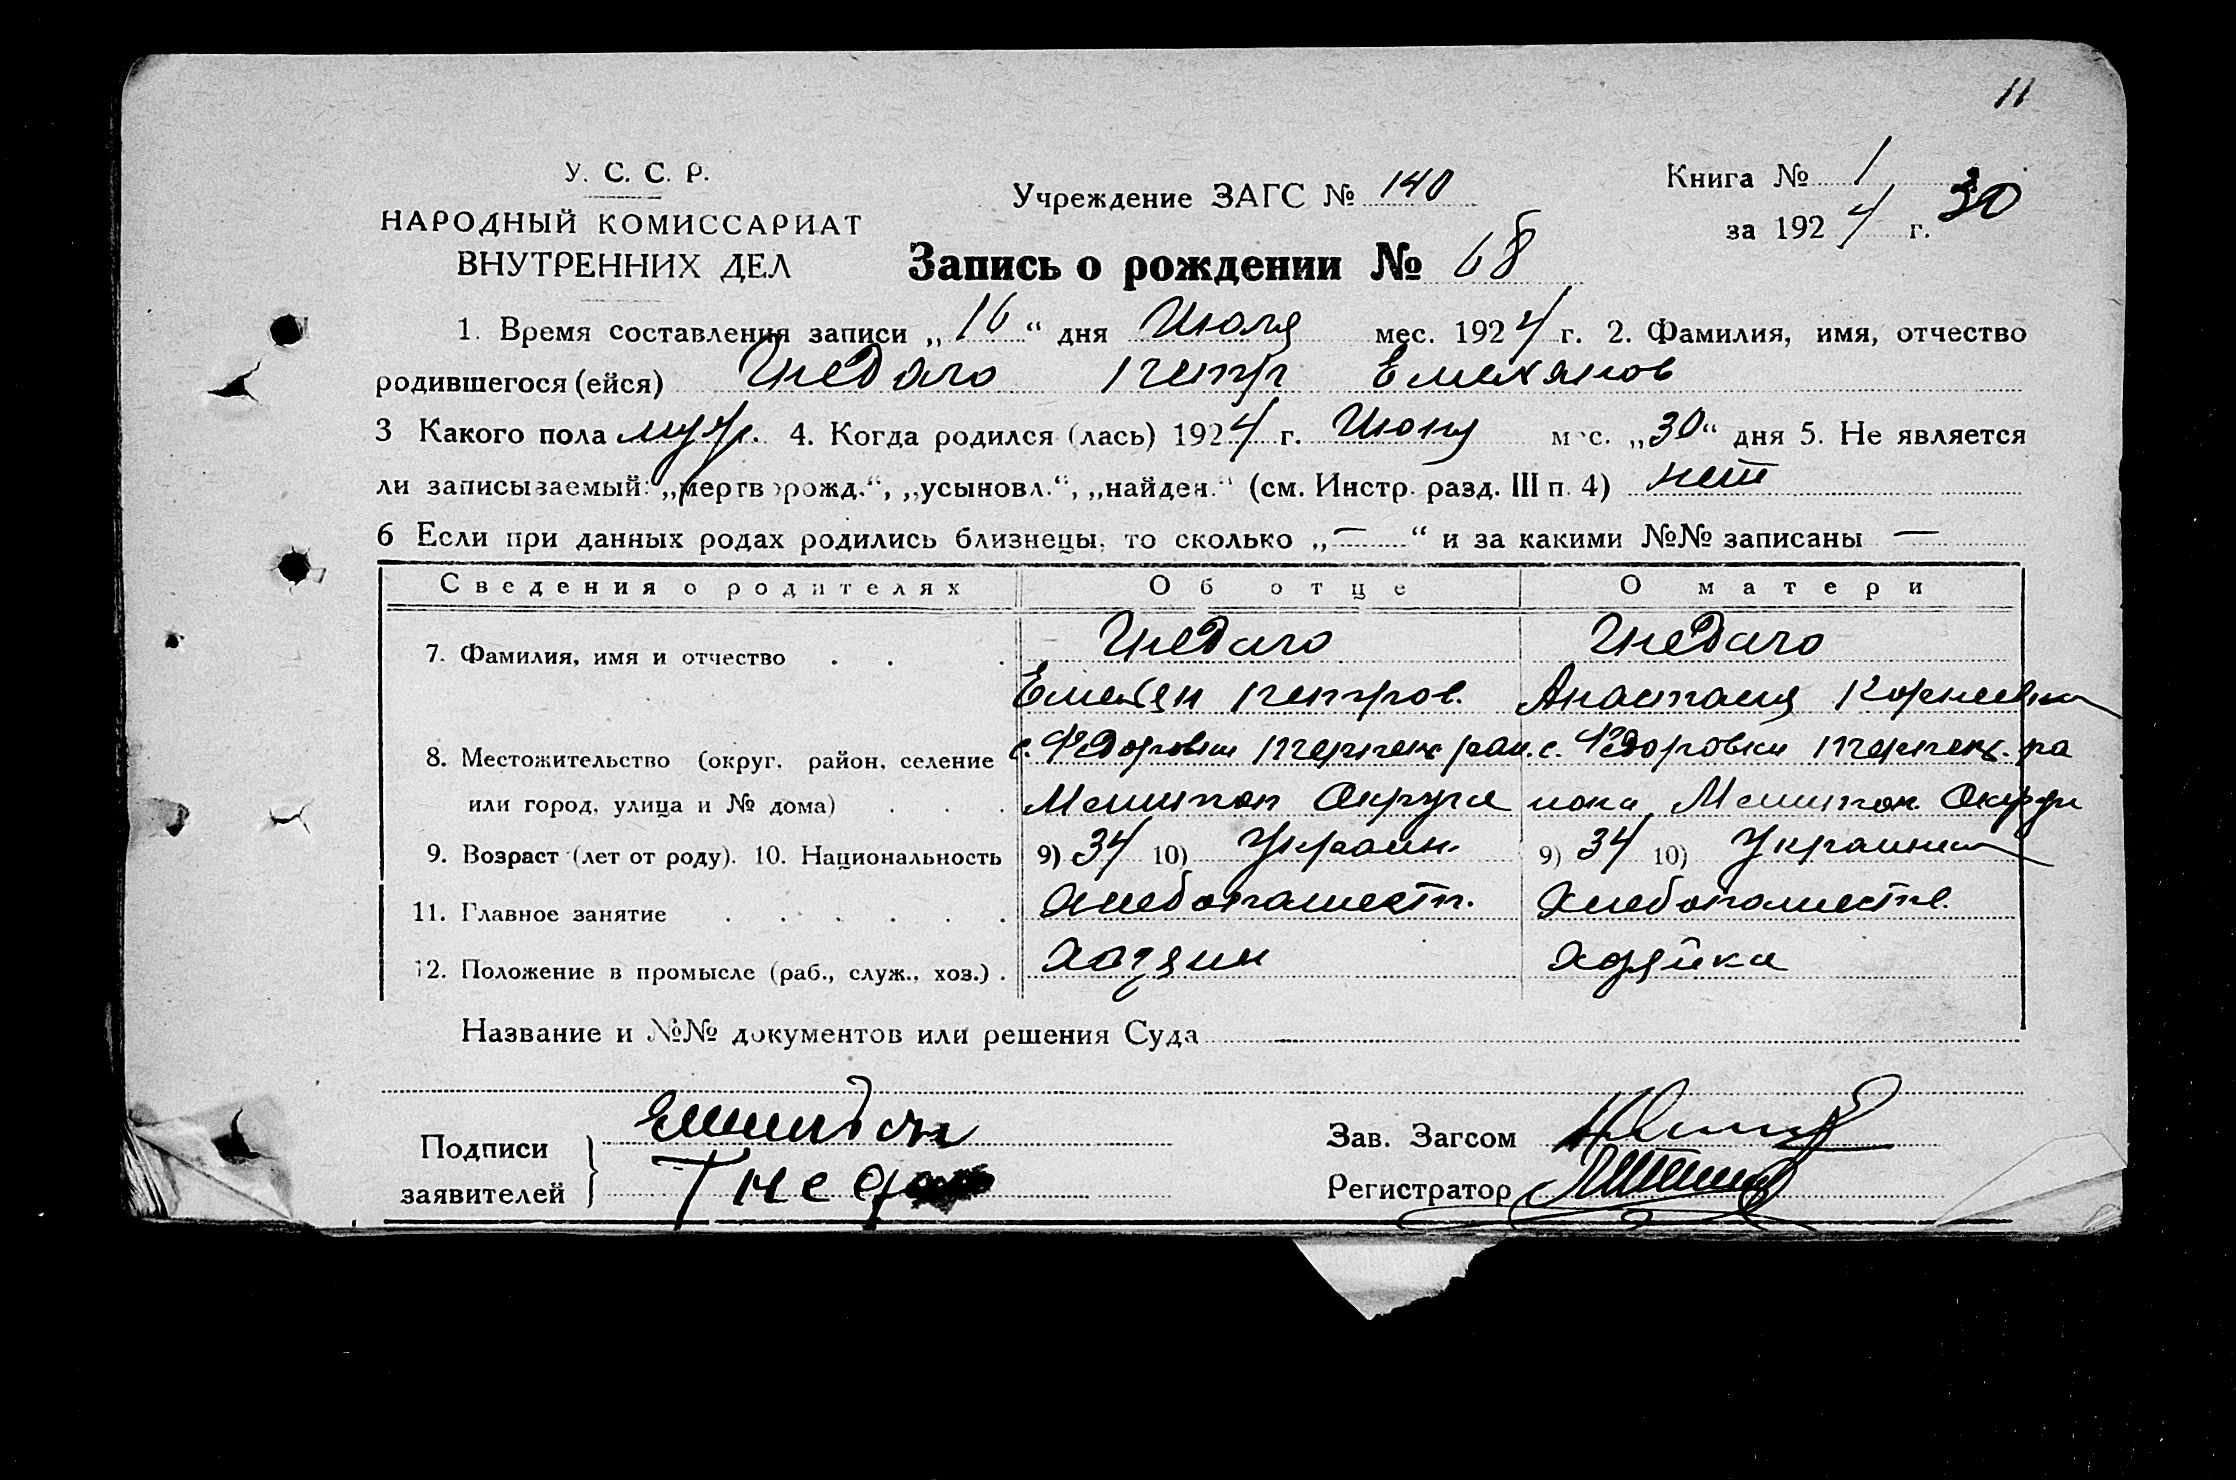 11
У. С. С. Р.
НАРОДНЫЙ КОМИССАРИАТ
ВНУТРЕННИХ ДЕЛ
Учреждение ЗАГС № 140
Книга № 1
за 1924 г. 30
Запись о рождении № 68
1. Время составления записи „16“ дня Июля мес. 1924 г. 2. Фамилия, имя, отчество
родившегося (ейся) Гнедаго Петр Емельянов
3 Какого пола муж. 4. Когда родился (лась) 1924 г. Июня мес. „30“ дня 5. Не является
ли записываемый: „мертворожд.“, „усыновл.“, „найден.“ (см. Инстр. разд. III п. 4) нет
6 Если при данных родах родились близнецы, то сколько „—“ и за какими №№ записаны —
Сведения о родителях Об отце О матери
7. Фамилия, имя и отчество . . . Гнедаго Гнедаго
Емельян Петров. Анастасия Корнеевна
8. Местожительство (округ, район, селение с. Федоровки рай. с. Федоровки ра
или город, улица и № дома) . . . Мелитоп Округа йона Мелитоп. Округ
9. Возраст (лет от роду). 10. Национальность 9) 34 10) Украин. 9) 34 10) Украинка
11. Главное занятие . . . . . . Хлебопашеств. Хлебопашеств.
12. Положение в промысле (раб., служ., хоз.) . Хозяин Хозяйка
Название и №№ документов или решения Суда
Подписи
заявителей
Емильян
Гнеда
Зав. Загсом
Регистратор